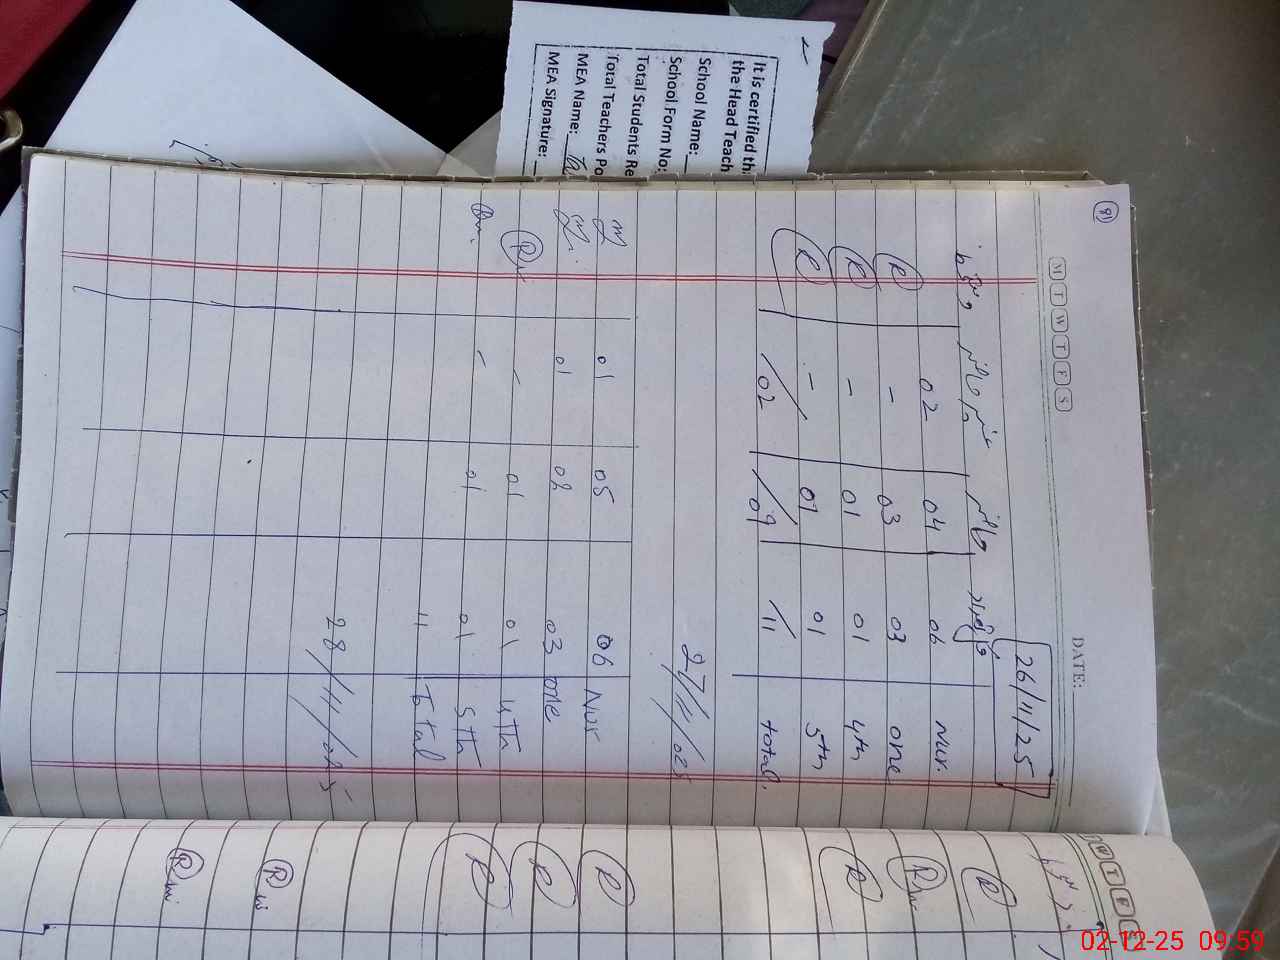 It is certified th
the Head Teach
School Name:
School Form No:
Total Students Re
Total Teachers Po
MEA Name:
MEA Signature:
91
M T W T F S
DATE:
26/11/25
دستخط غیر حاضر حاضر
02 04 06 Nur.
R - 03 03 one
R - 01 01 4th
R - 01 01 5th
02 09 11 total.
27/11/025
01 05 06 Nur
01 02 03 one
R - 01 01 4th
- 01 01 5th
11 Total
28/11/025
W T F S
R
R
R
R
R
R
R
R
02-12-25 09:59